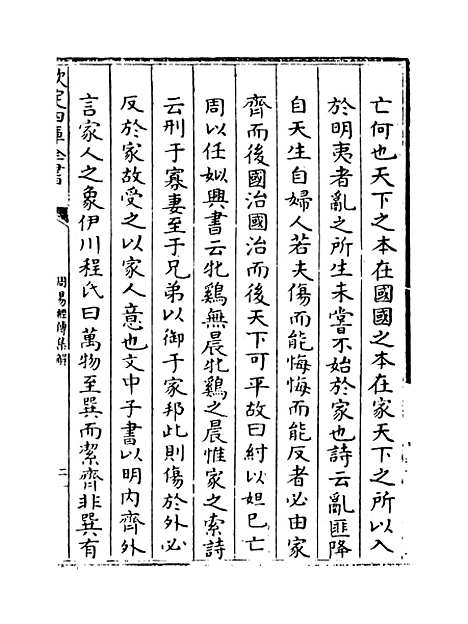 亡何也天下之本在國國之本在家天下之所以入
於明夷者亂之所生未嘗不始於家也詩云亂匪降
自天生自婦人若夫傷而能悔悔而能反者必由家
齊而後國治國治而後天下可平故曰紂以妲己亡
周以任姒興書云牝鷄無晨牝鷄之晨惟家之索詩
云刑于寡妻至于兄弟以御于家邦此則傷於外必
反於家故受之以家人意也文中子書以明内齊外
言家人之象伊川程氏曰萬物至巽而潔齊非巽有
欽定四庫全書
周易經傳集解
二